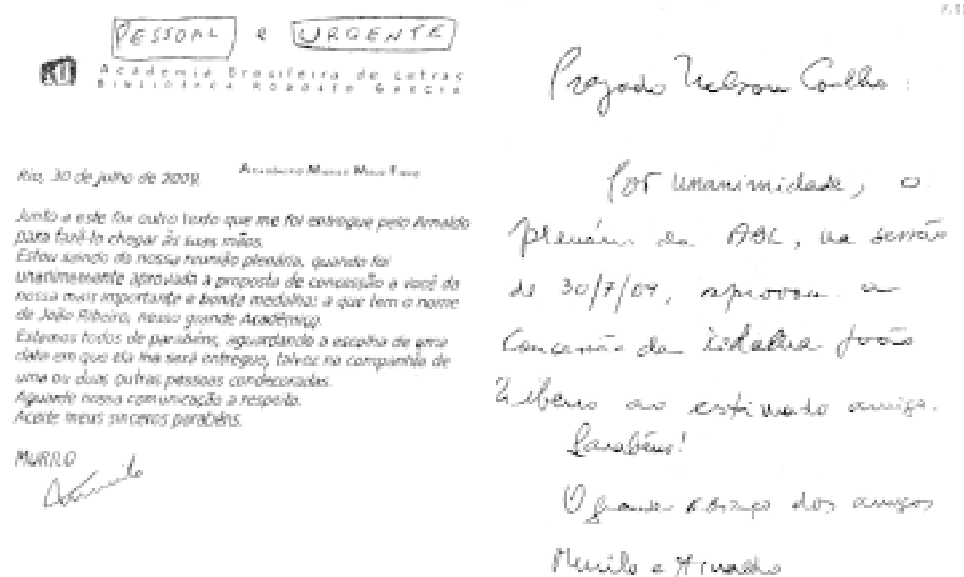 PESSOAL e URGENTE
Academia Brasileira de Letras
Biblioteca Rodolfo Garcia
Rio, 30 de julho de 2009.
Junto a este fax outro texto que me foi entregue pelo Arnaldo
para fazê-lo chegar às suas mãos.
Estou saindo da nossa reunião plenária, quando foi
unanimemente aprovada a proposta de concessão a você da
nossa mais importante e bonita medalha: a que tem o nome
de João Ribeiro, nosso grande Acadêmico.
Estamos todos de parabéns, aguardando a escolha de uma
data em que ela lhe será entregue, talvez na companhia de
uma ou duas outras pessoas condecoradas.
Aguarde nossa comunicação a respeito.
Aceite meus sinceros parabéns.
MURILO
Murilo
Prezado Nelson Coelho:
Por unanimidade, o
plenário da ABL, na sessão
de 30/7/09, aprovou a
Concessão da Medalha João
Ribeiro ao estimado amigo.
Parabéns!
O grande abraço dos amigos
Murilo e Arnaldo